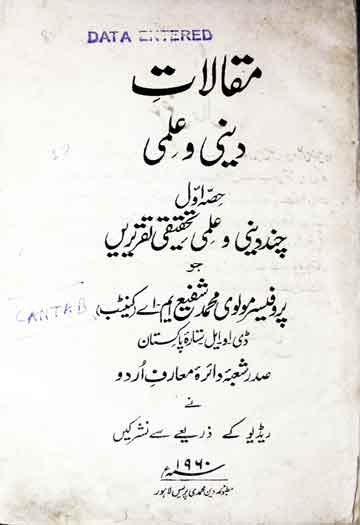 DATA ENTERED
مقالاتِ
دینی و علمی
حصہ اوّل
چند دینی و علمی تحقیقی تقریریں
جو
پروفیسر مولوی محمد شفیع ایم-اے (کینٹب)
CANTAB
ڈی او ایل ستارۂ پاکستان
صدر شعبۂ دائرۂ معارفِ اُردو
نے
ریڈیو کے ذریعے سے نشر کیں
۱۹۶۰ء
مطبوعہ دین محمدی پریس لاہور